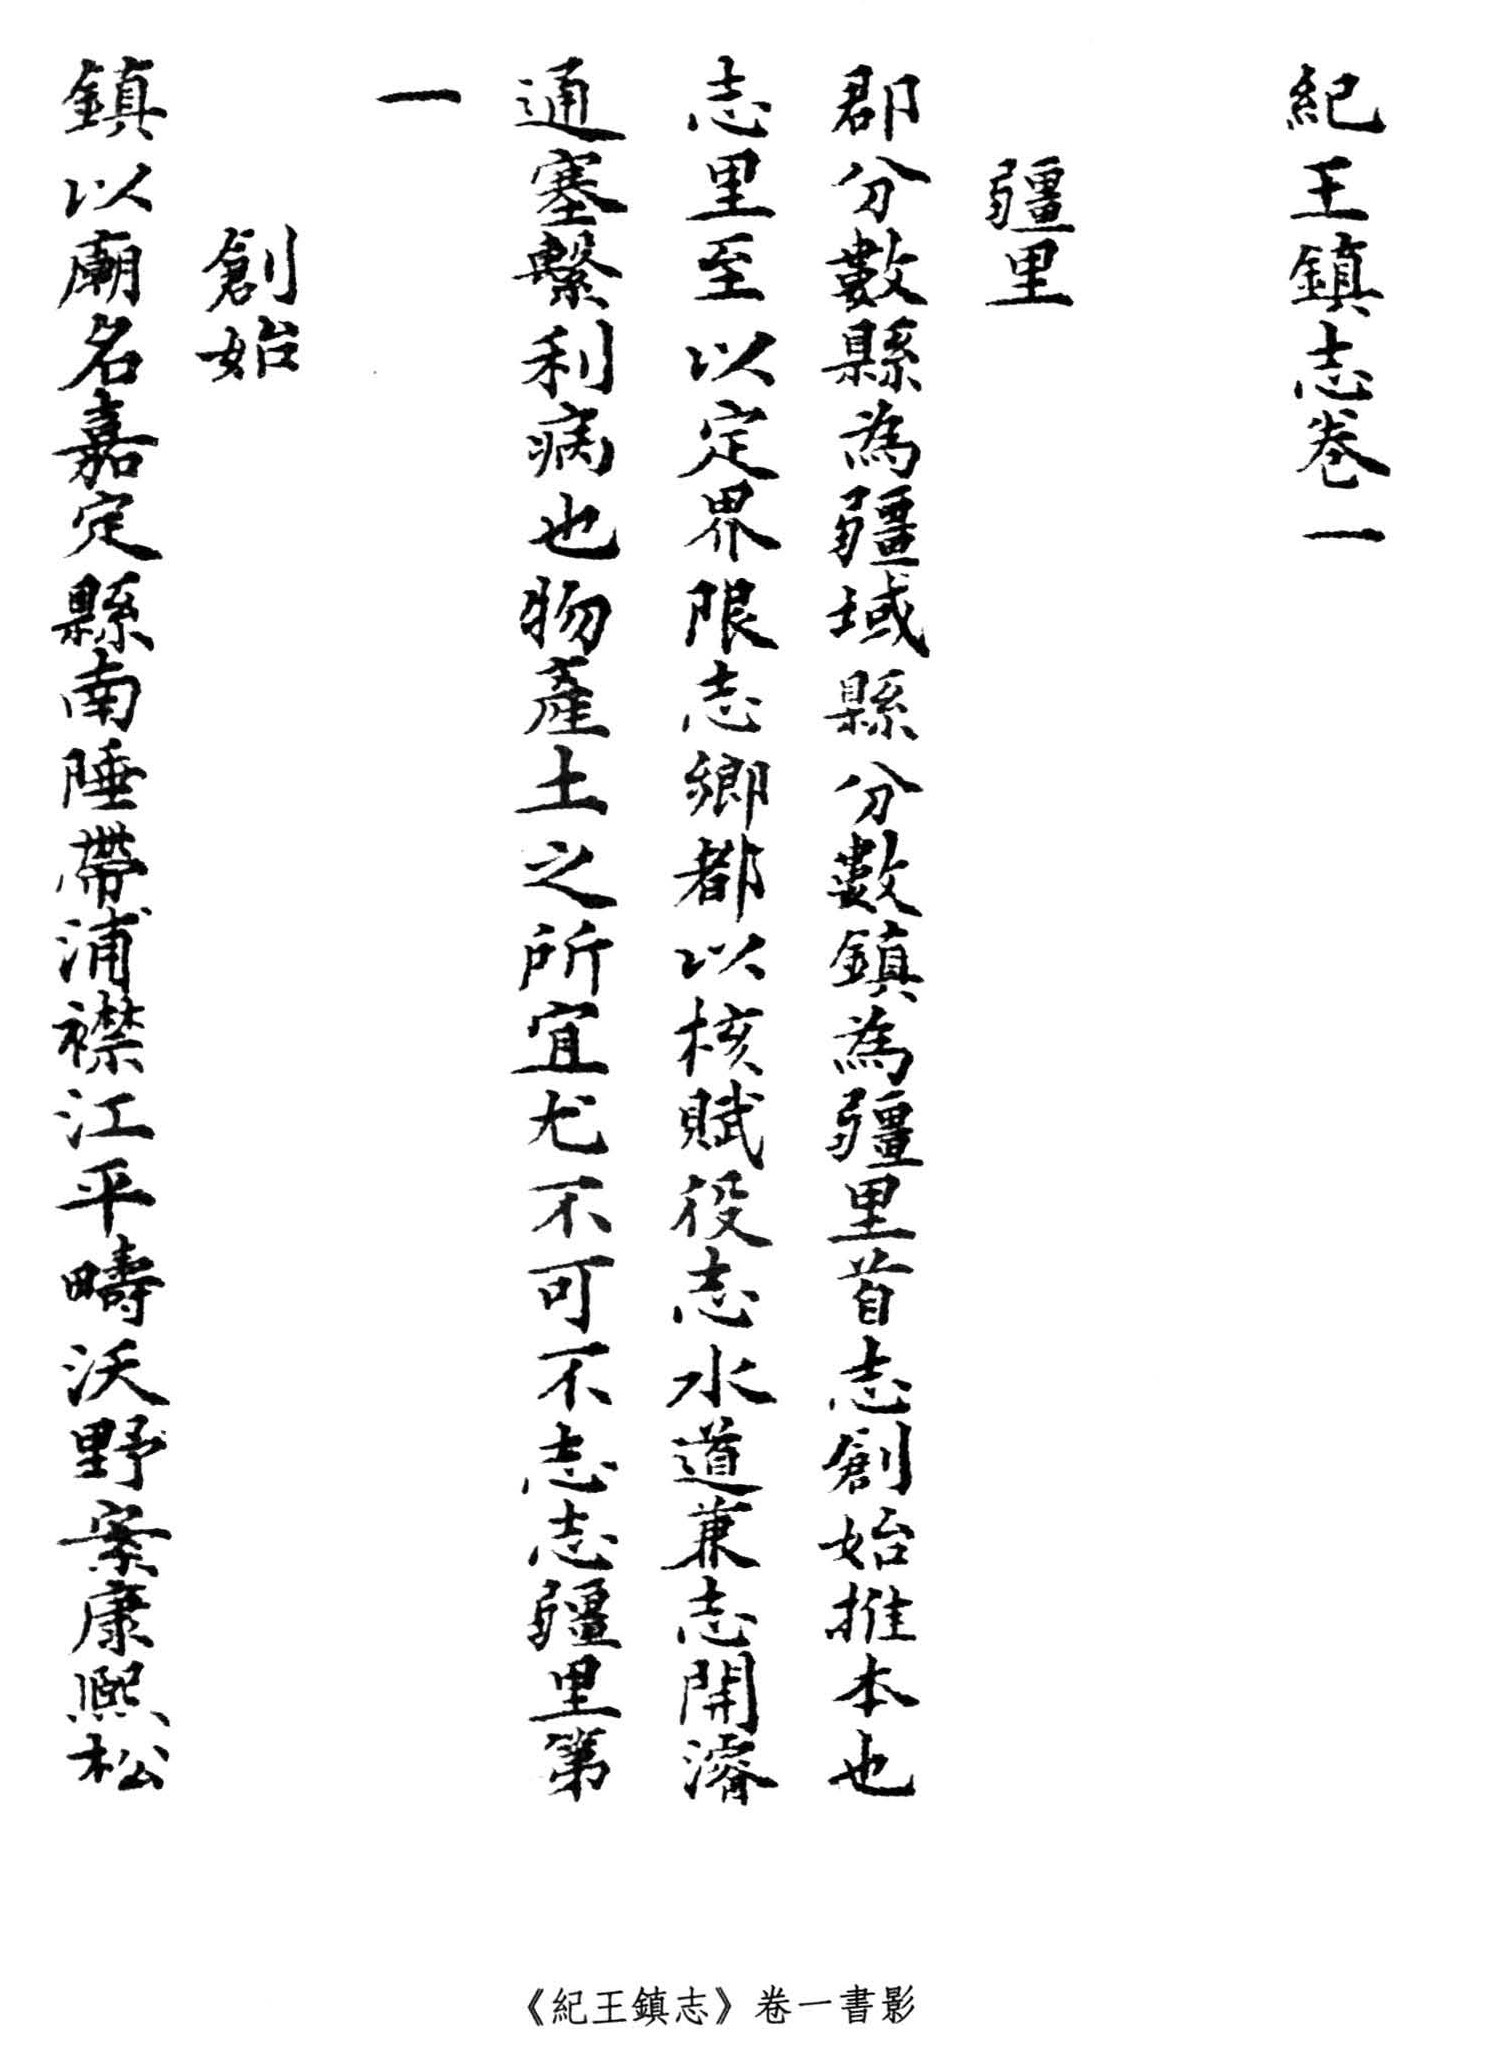 紀王鎮志卷一
疆里
郡分數縣為疆域縣分數鎮為疆里首志創始推本也
志里至以定界限志鄉都以核賦役志水道兼志開濬
通塞繫利病也物產土之所宜尤不可不志志疆里第
一
創始
鎮以廟名嘉定縣南陲帶浦襟江平疇沃野案康熙松
《紀王鎮志》卷一書影